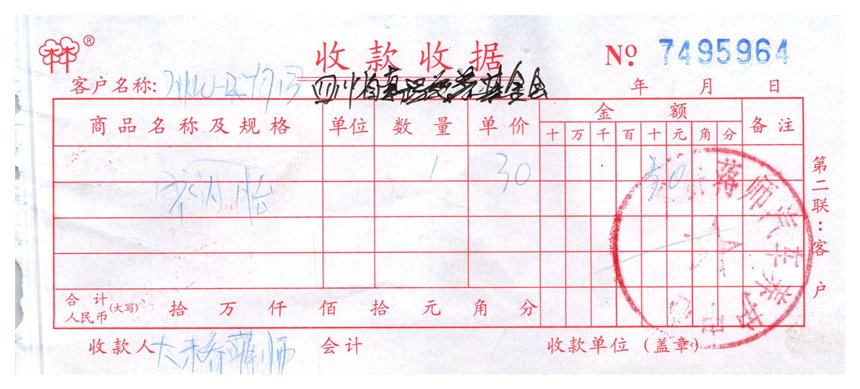 ®
收款收据 № 7495964
客户名称: 四川省 基金会 年 月 日
商品名称及规格 单位 数量 单价 金额 备注
十 万 千 百 十 元 角 分
1 30 30
合计人民币(大写) 拾 万 仟 佰 拾 元 角 分
收款人 蒋师 会计 收款单位(盖章)
第二联:客户
蒋师汽车